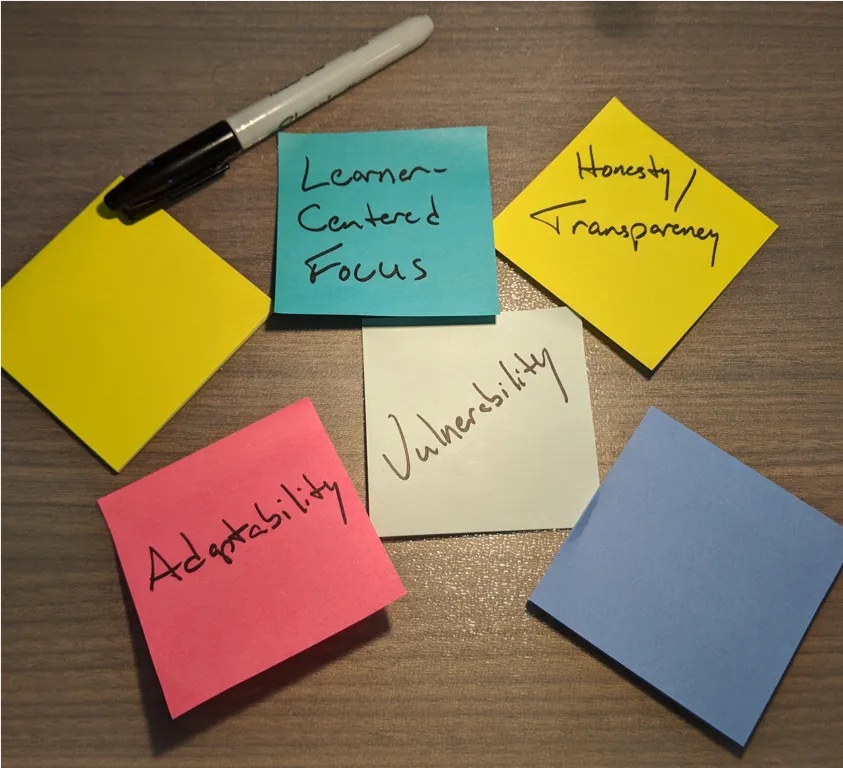 Learner-
Centered
Focus
Honesty/
Transparency
Vulnerability
Adaptability